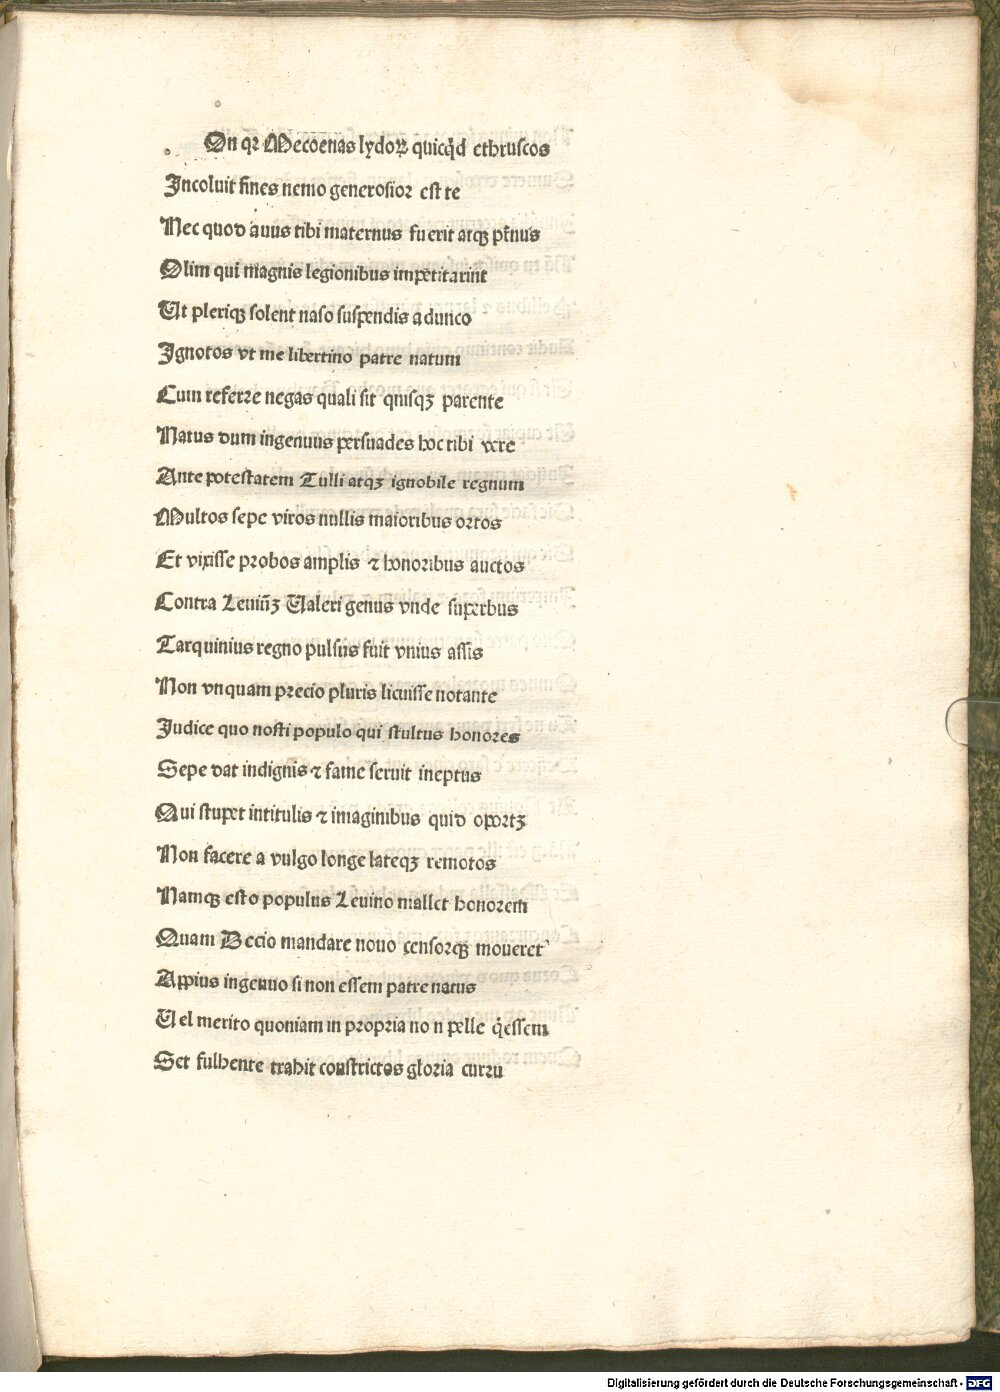 On qꝛ Mecoenas lydoꝝ quicq̄d ethruscos
Incoluit fines nemo generosior est te
Nec quod auus tibi maternus fuerit atqꝫ pr̄nus
Olim qui magnis legionibus imꝑetitarint
Ut pleriqꝫ solent naso suspendis adunco
Ignotos vt me libertino patre natum
Cum referre negas quali sit quisqꝫ parente
Natus dum ingenuus persuades hoc tibi vere
Ante potestatem Tulli atqꝫ ignobile regnum
Multos sepe viros nullis maioribus ortos
Et vixisse probos amplis ⁊ honoribus auctos
Contra Leuiūꝫ Ualeri genus vnde superbus
Tarquinius regno pulsus fuit vnius assis
Non vnquam precio pluris licuisse notante
Judice quo nosti populo qui stultus honores
Sepe dat indignis ⁊ fame seruit ineptus
Qui stupet intitulis ⁊ imaginibus quid oportꝫ
Non facere a vulgo longe lateqꝫ remotos
Namqꝫ esto populus Leuino mallet honorem
Quam Decio mandare nouo censorqꝫ moueret
Appius ingenuo si non essem patre natus
Uel merito quoniam in propria non pelle q̄essem
Set fulhente trahit constrictos gloria curru
Digitalisierung gefördert durch die Deutsche Forschungsgemeinschaft - DFG